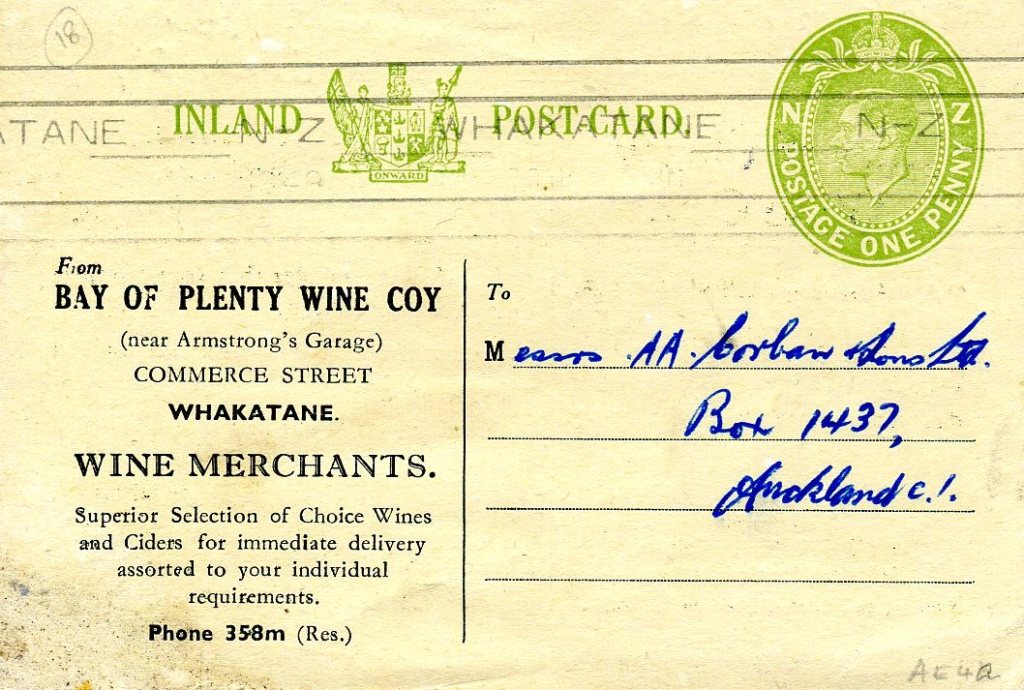 18
INLAND POST CARD.
ATANE N-Z WHAKATANE N-Z
ONWARD
N Z
POSTAGE ONE PENNY
From
BAY OF PLENTY WINE COY
(near Armstrong's Garage)
COMMERCE STREET
WHAKATANE.
WINE MERCHANTS.
Superior Selection of Choice Wines
and Ciders for immediate delivery
assorted to your individual
requirements.
Phone 358m (Res.)
To
Messrs A.A. Corban & Sons Ltd.
Box 1437,
Auckland C.1.
AE4a